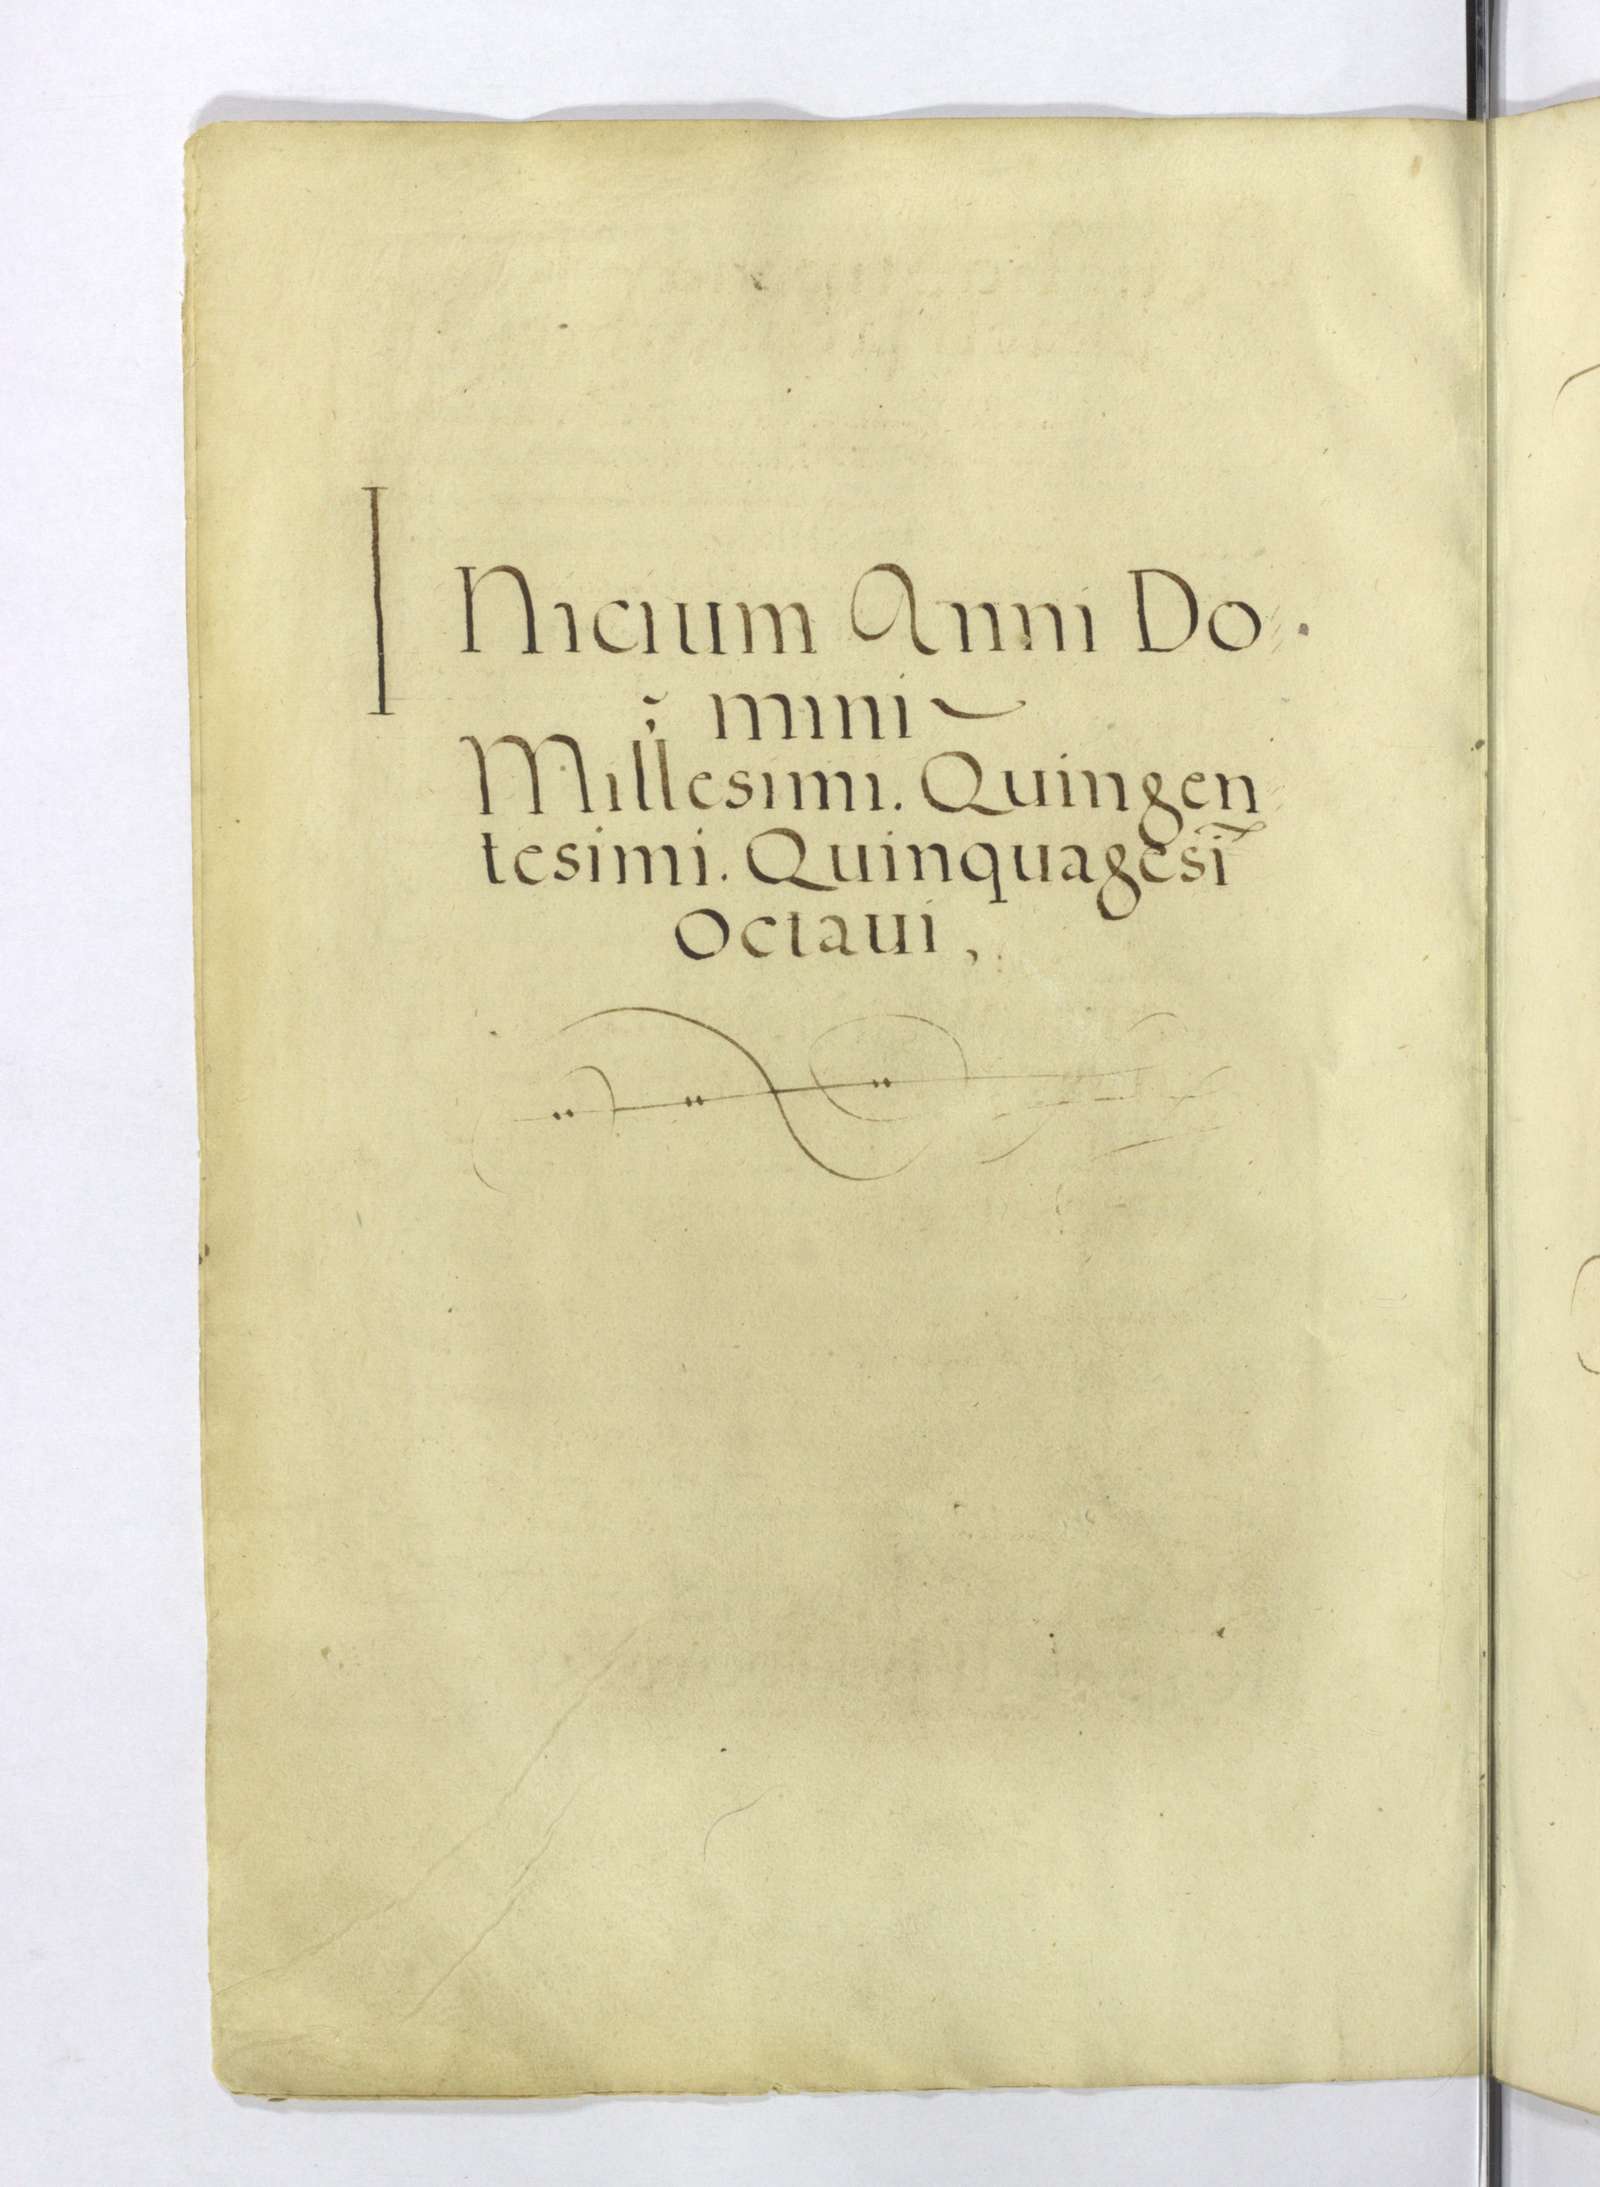 INicium Anni Do
mini
Millesimi. Quingen
tesimi. Quinquagesi̅
Octaui,